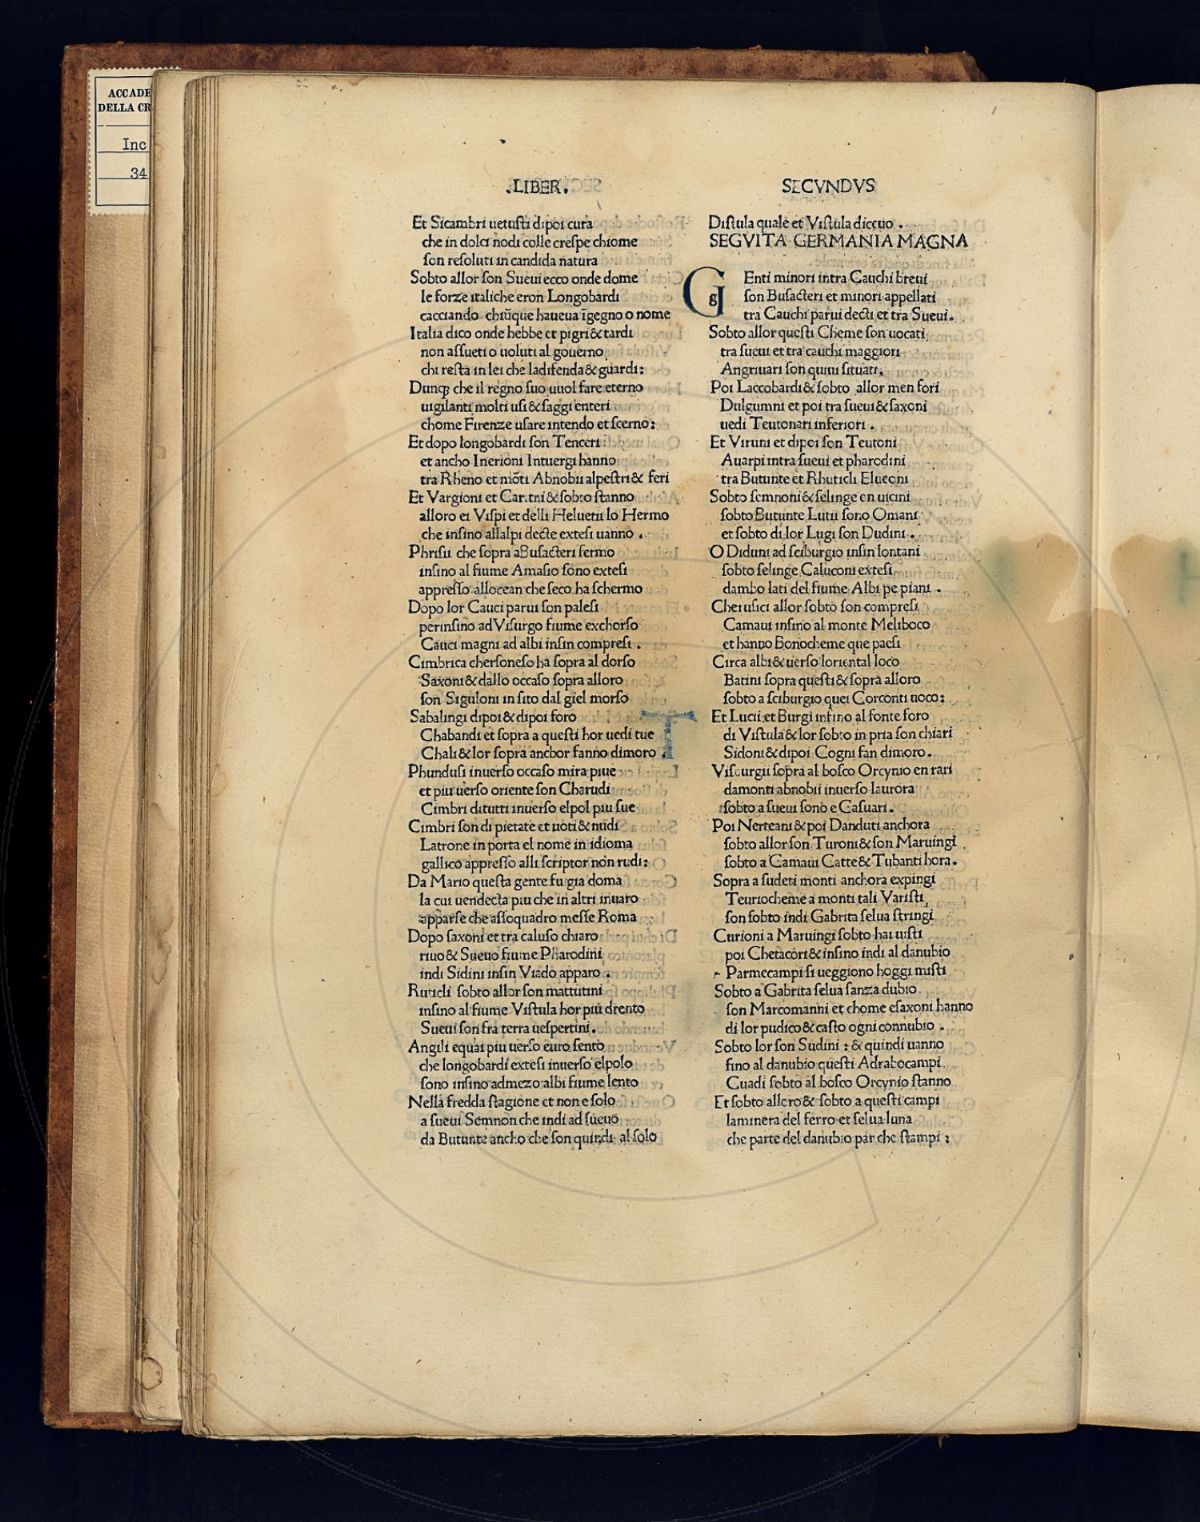 ACCADE
DELLA CR
Inc
34
.LIBER.
Et Sicambri uetusti dipoi cura
che in dolci nodi colle crespe chiome
son resoluti in candida natura
Sobto allor son Sueui ecco onde dome
le forze italiche eron Longobardi
cacciando chiūque haueua īgegno o nome
Italia dico onde hebbe et pigri & tardi
non assueti o uoluti al gouerno
chi resta in lei che ladifenda & guardi:
Dunqꝫ che il regno suo uuol fare eterno
uigilanti molti usi & saggi enteri
chome Firenze usare intendo et scerno:
Et dopo longobardi son Tenceri
et ancho Inerioni Intuergi hanno
tra Rheno et mōti Abnobii alpestri & feri
Et Vargioni et Caritni & sobto stanno
alloro ei Vispi et delli Heluetii lo Hermo
che insino allalpi decte extesi uanno .
Phrisii che sopra aBusacteri fermo
insino al fiume Amasio sono extesi
appresso allocean che seco ha schermo
Dopo lor Cauci parui son palesi
perinsino adVisurgo fiume exchorso
Cauci magni ad albi insin compresi .
Cimbrica chersoneso ha sopra al dorso
Saxoni & dallo occaso sopra alloro
son Siguloni in sito dal giel morso
Sabalingi dipoi & dipoi foro
Chabandi et sopra a questi hor uedi tue
Chali & lor sopra anchor fanno dimoro .
Phundusi inuerso occaso mira piue
et piu uerso oriente son Charudi
Cimbri ditutti inuerso elpol piu sue
Cimbri son di pietate et uoti & nudi
Latrone in porta el nome in idioma
gallico appresso alli scriptor non rudi:
Da Mario questa gente fu gia doma
la cui uendecta piu che in altri inuaro
apparse che assoquadro messe Roma
Dopo saxoni et tra caluso chiaro
riuo & Sueuo fiume Pharodini
indi Sidini insin Viado apparo .
Ruticli sobto allor son mattutini
insino al fiume Vistula hor piu drento
Sueui son fra terra uespertini .
Angili equai piu uerso euro sento
che longobardi extesi inuerso elpolo
sono insino admezo albi fiume lento
Nella fredda stagione et non e solo
a sueui Semnon che indi ad sueuo
da Butunte ancho che son quindi al solo
SECVNDVS
Distula quale et Vistula diccuo .
SEGVITA GERMANIA MAGNA
G
g
Enti minori intra Cauchi breui
son Busacteri et minori appellati
tra Cauchi parui decti et tra Sueui .
Sobto allor questi Cheme son uocati
tra sueui et tra cauchi maggiori
Angriuari son quiui situati .
Poi Laccobardi & sobto allor men fori
Dulgumni et poi tra sueui & saxoni
uedi Teutonari inferiori .
Et Viruni et dipoi son Teutoni
Auarpi intra sueui et pharodini
tra Butunte et Rhuticli Elueoni
Sobto semnoni & selinge en uicini
sobto Butunte Lutii sono Omani
et sobto di lor Lugi son Dudini .
O Diduni ad sciburgio insin lontani
sobto selinge Caluconi extesi
dambo lati del fiume Albi pe piani .
Cherusici allor sobto son compresi
Camaui insino al monte Meliboco
et hanno Bonocheme que paesi
Circa albi & uerso loriental loco
Batini sopra questi & sopra alloro
sobto a sciburgio quei Corconti uoco:
Et Lucii et Burgi infino al fonte foro
di Vistula & lor sobto in pria son chiari
Sidoni & dipoi Cogni fan dimoro .
Viscurgii sopra al bosco Orcynio en rari
damonti abnobii inuerso laurora
sobto a sueui sono e Casuari .
Poi Nerteani & poi Danduti anchora
sobto allor son Turoni & son Maruingi
sobto a Camaui Catte & Tubanti hora .
Sopra a sudeti monti anchora expingi
Teuriocheme a monti tali Varisti
son sobto indi Gabrita selua stringi
Curioni a Maruingi sobto hai uisti
poi Chetacori & insino indi al danubio
Parmecampi si ueggiono hoggi misti
Sobto a Gabrita selua sanza dubio
son Marcomanni et chome esaxoni hanno
di lor pudico & casto ogni connubio .
Sobto lor son Sudini : & quindi uanno
fino al danubio questi Adrabocampi
Cuadi sobto al bosco Orcynio stanno
Et sobto alloro & sobto a questi campi
laminera del ferro et selua luna
che parte del danubio par che stampi :